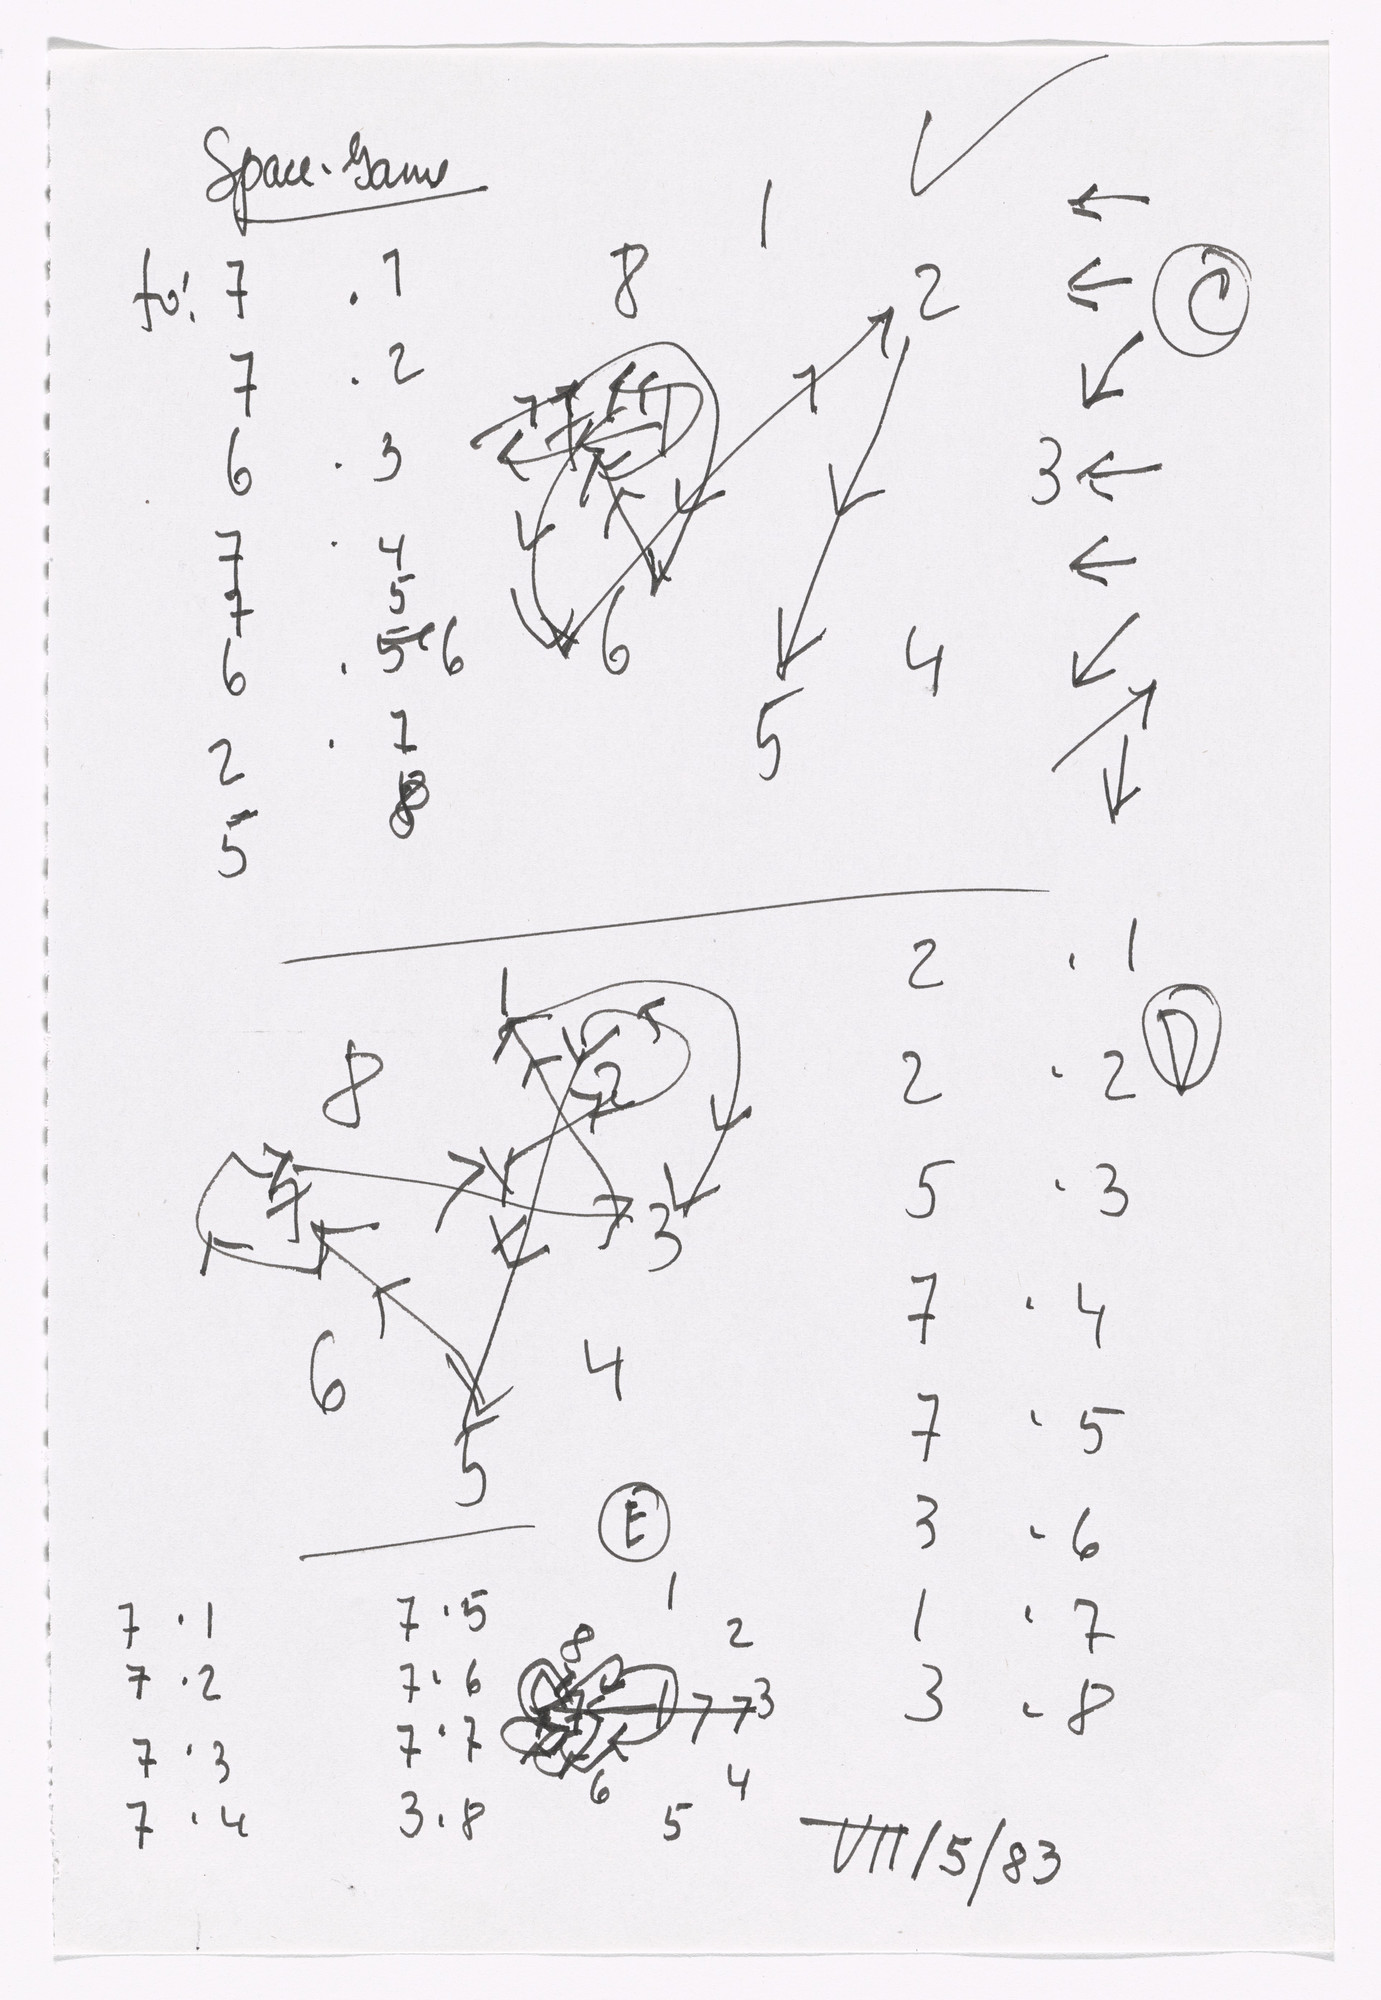 Space-Game
1
to: 7 . 1 8 2 ← C
7 . 2 ←
7 ↙
6 . 3 3 ←
7 . 4 ←
7 5
6 . 5 6 6 4 ↙
2 . 7 5 ↗
8 ↓
5
2 . 1
1 D
8 2 2 . 2
7 3 5 . 3
6 4 7 . 4
5 7 . 5
E 3 . 6
7 . 1 7 . 5 1 1 . 7
8 2
7 . 2 7 . 6 7 3 3 . 8
7 . 3 7 . 7 6 4
7 . 4 3 . 8 5
VII/5/83